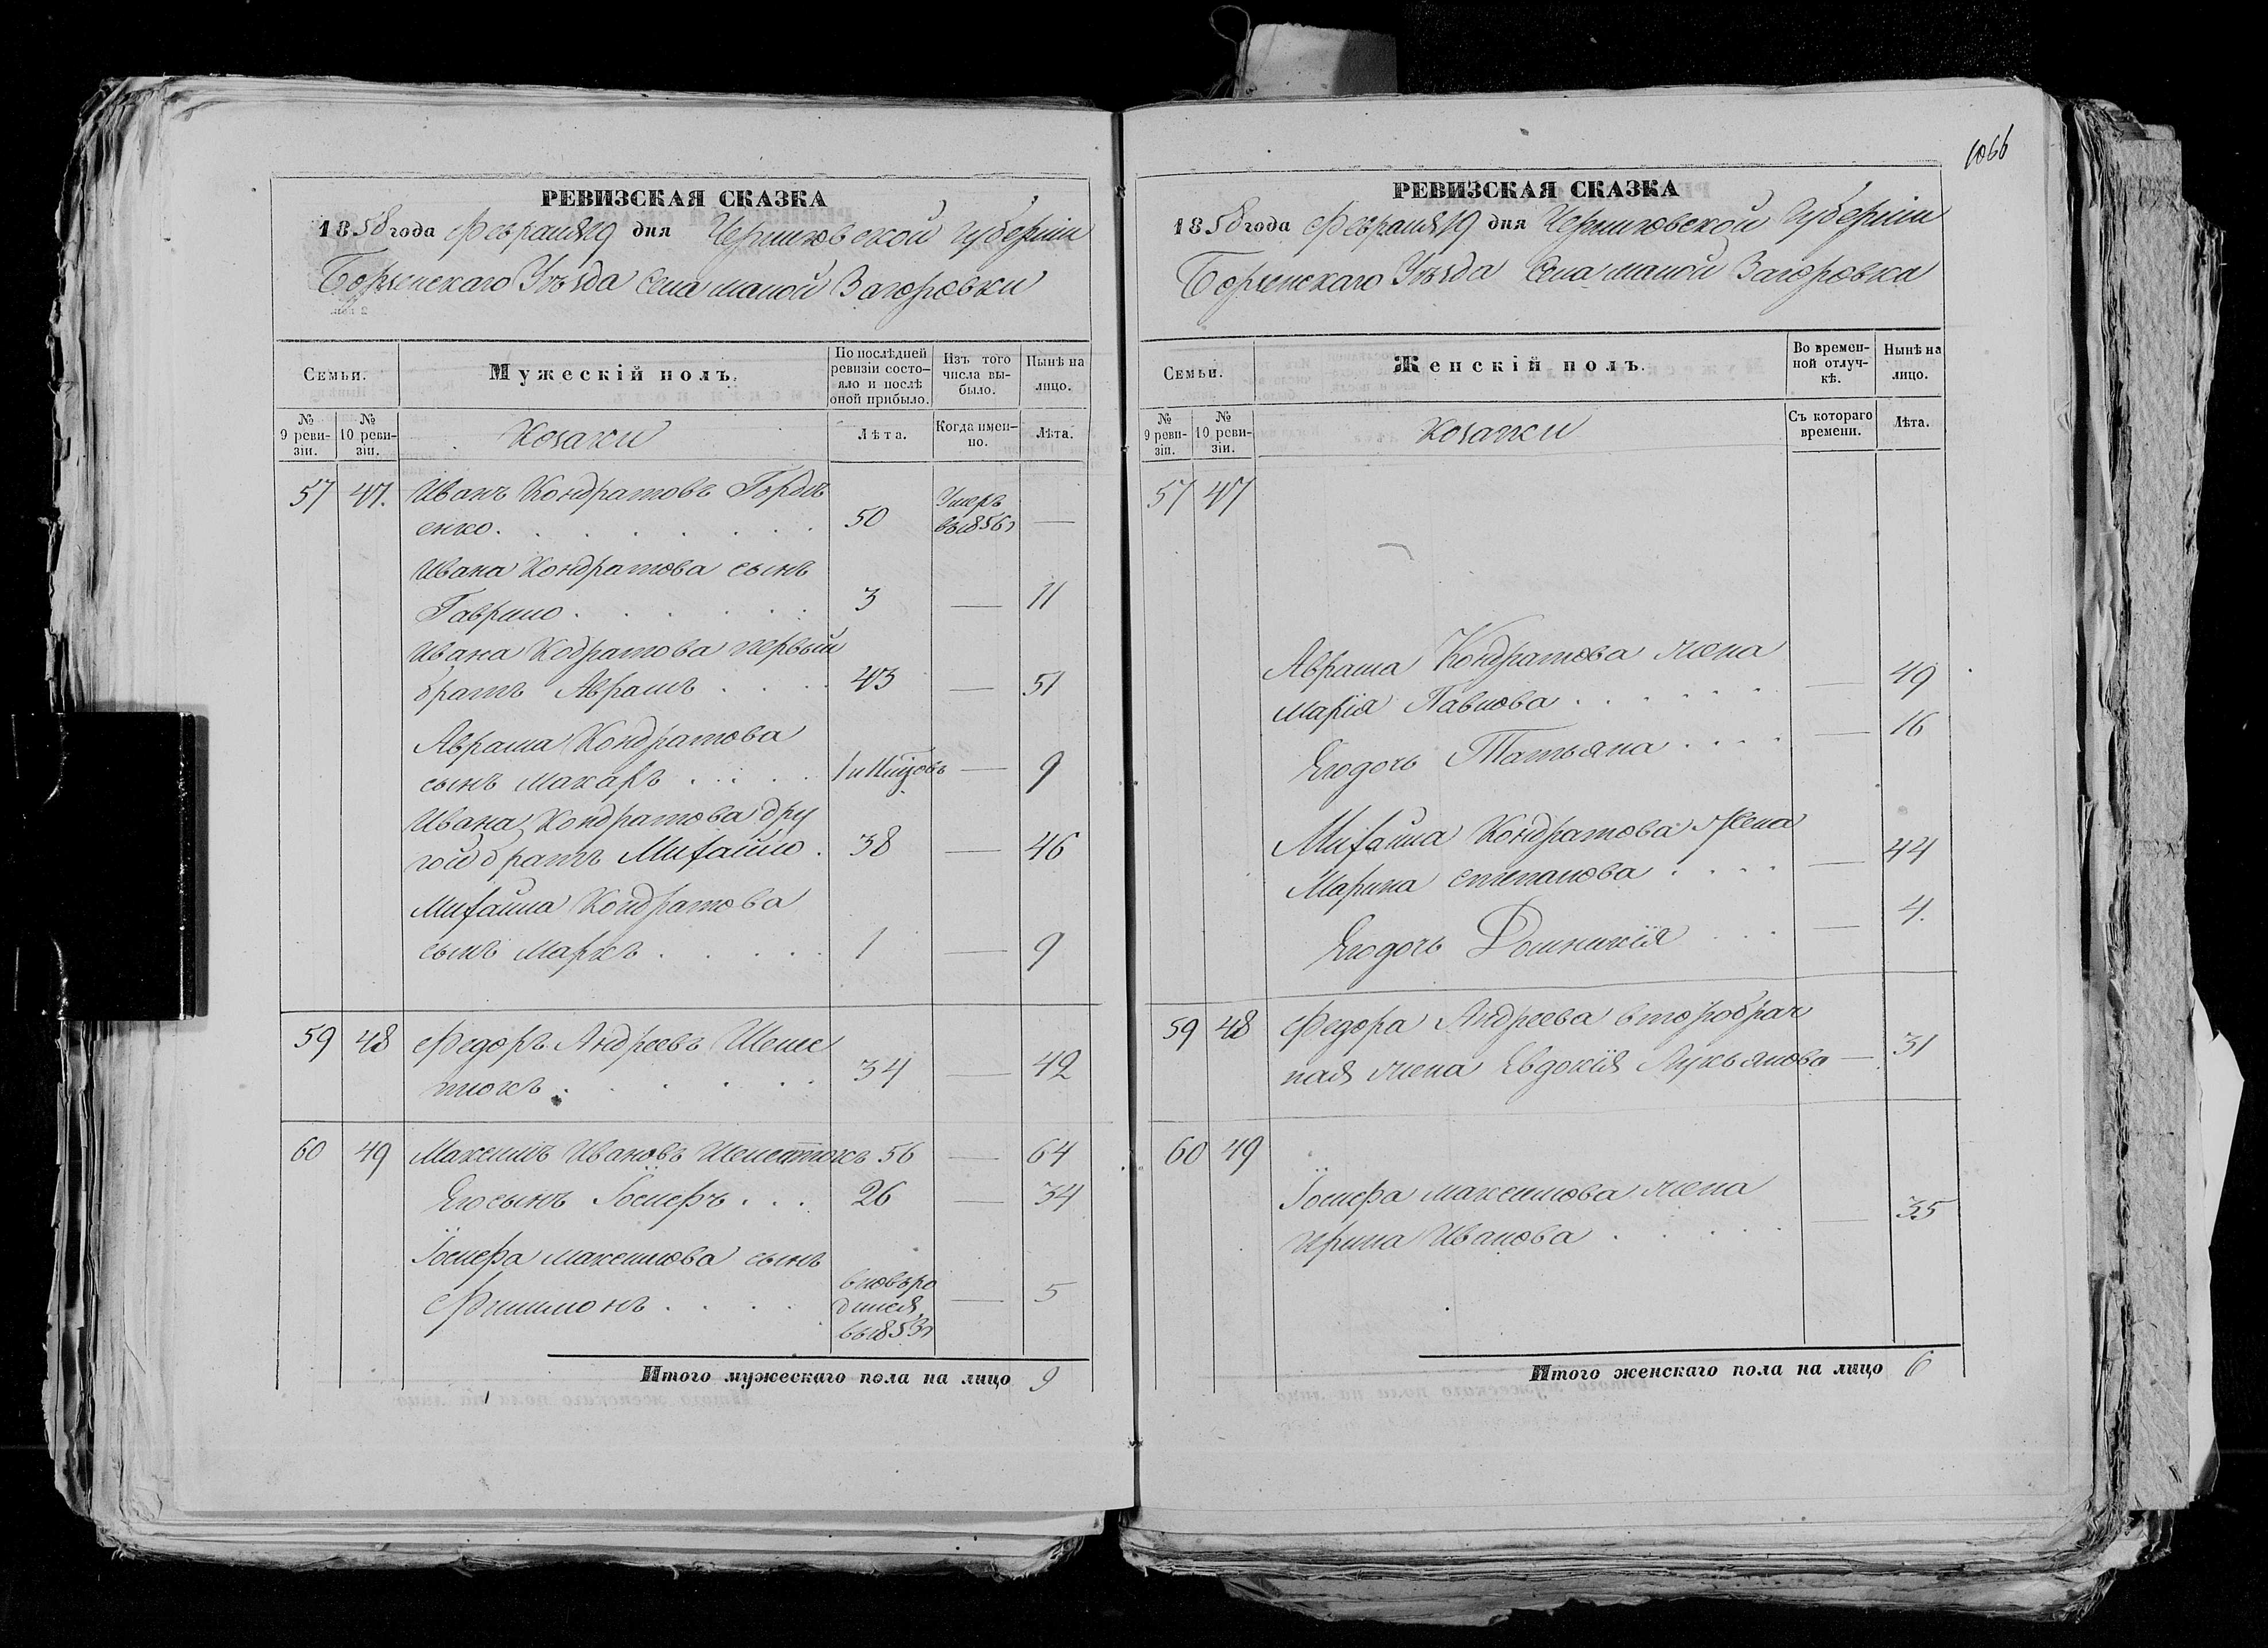 РЕВИЗСКАЯ СКАЗКА
1858 года Февраля 19 дня Черниговской губерніи
Борзенскаго Уѣзда Села малой Загоровки
Семьи.
Мужескій полъ.
По послѣдней ревизіи состояло и послѣ оной прибыло.
Изъ того числа выбыло.
Нынѣ на лицо.
№ 9 ревизіи.
№ 10 ревизіи.
Козаки
Лѣта.
Когда именно.
Лѣта.
57 47. Иванъ Кондратовъ Горди
енко. 50 Умеръ въ 1856 —
Ивана Кондратова сынъ
Гаврило 3 — 11
Ивана Кодратова первый
братъ Аврамъ 43 — 51
Аврама Кондратова
сынъ Макаръ 1 — 9
Ивана Кондратова дру
гой братъ Михайло 38 — 46
Михайла Кондратова
сынъ Марко 1 — 9
59 48 Федоръ Андреевъ Шеме
тюкъ 34 — 42
60 49 Максимъ Ивановъ 56 — 64
Его сынъ Іосифъ 26 — 34
Іосифа Максимова сынъ
Филимонъ вновь ро
дился
въ 1853 — 5
Итого мужескаго пола на лицо 9
1066
РЕВИЗСКАЯ СКАЗКА
1858 года Февраля 19 дня Черниговской Губерніи
Борзенскаго Уѣзда Села малой Загоровки
Семьи.
Женскій полъ.
Во временной отлучкѣ.
Нынѣ на лицо.
№ 9 ревизіи.
№ 10 ревизіи.
Козаки
Съ котораго времени.
Лѣта.
57 47
Аврама Кондратова жена
Марія Павлова — 49
Его дочь Татьяна — 16
Михайла Кондратова жена
Марина Степанова — 44
Его дочь Домникія — 4.
59 48 Федора Андреева второбрач
ная жена Евдокія Лукьянова — 31
60 49
Іосифа Максимова жена
Ирина Иванова — 35
Итого женскаго пола на лицо 6